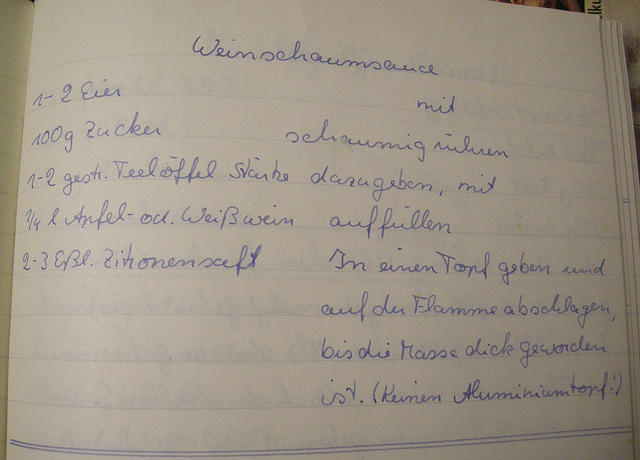 Weinschaumsauce
1-2 Eier mit
100g Zucker schaumig rühren
1-2 gestr. Teelöffel Stärke dazugeben, mit
1/4 l Apfel- od. Weißwein auffüllen
2-3 Eßl. Zitronensaft In einen Topf geben und
auf der Flamme abschlagen,
bis die Masse dick geworden
ist. (Keinen Aluminiumtopf!)